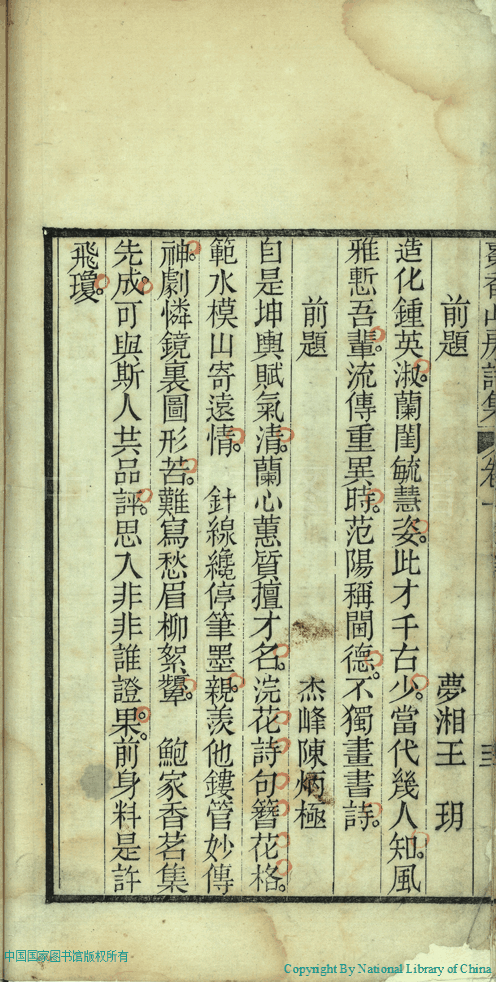 前題 夢湘王 玥
造化鍾英淑。蘭閨毓慧姿。此才千古少。當代幾人知。風
雅慙吾輩。流傳重異時。范陽稱閫德。不獨畫書詩。
前題 杰峰陳炳極
自是坤輿賦氣清。蘭心蕙質擅才名。浣花詩句簪花格。
範水模山寄遠情。 針線纔停筆墨親。羨他鏤管妙傳
神。劇憐鏡裏圖形苦。難寫愁眉柳絮顰。 鮑家香茗集
先成。可與斯人共品評。思入非非誰證果。前身料是許
飛瓊。
中国国家图书馆版权所有
Copyright By National Library of China